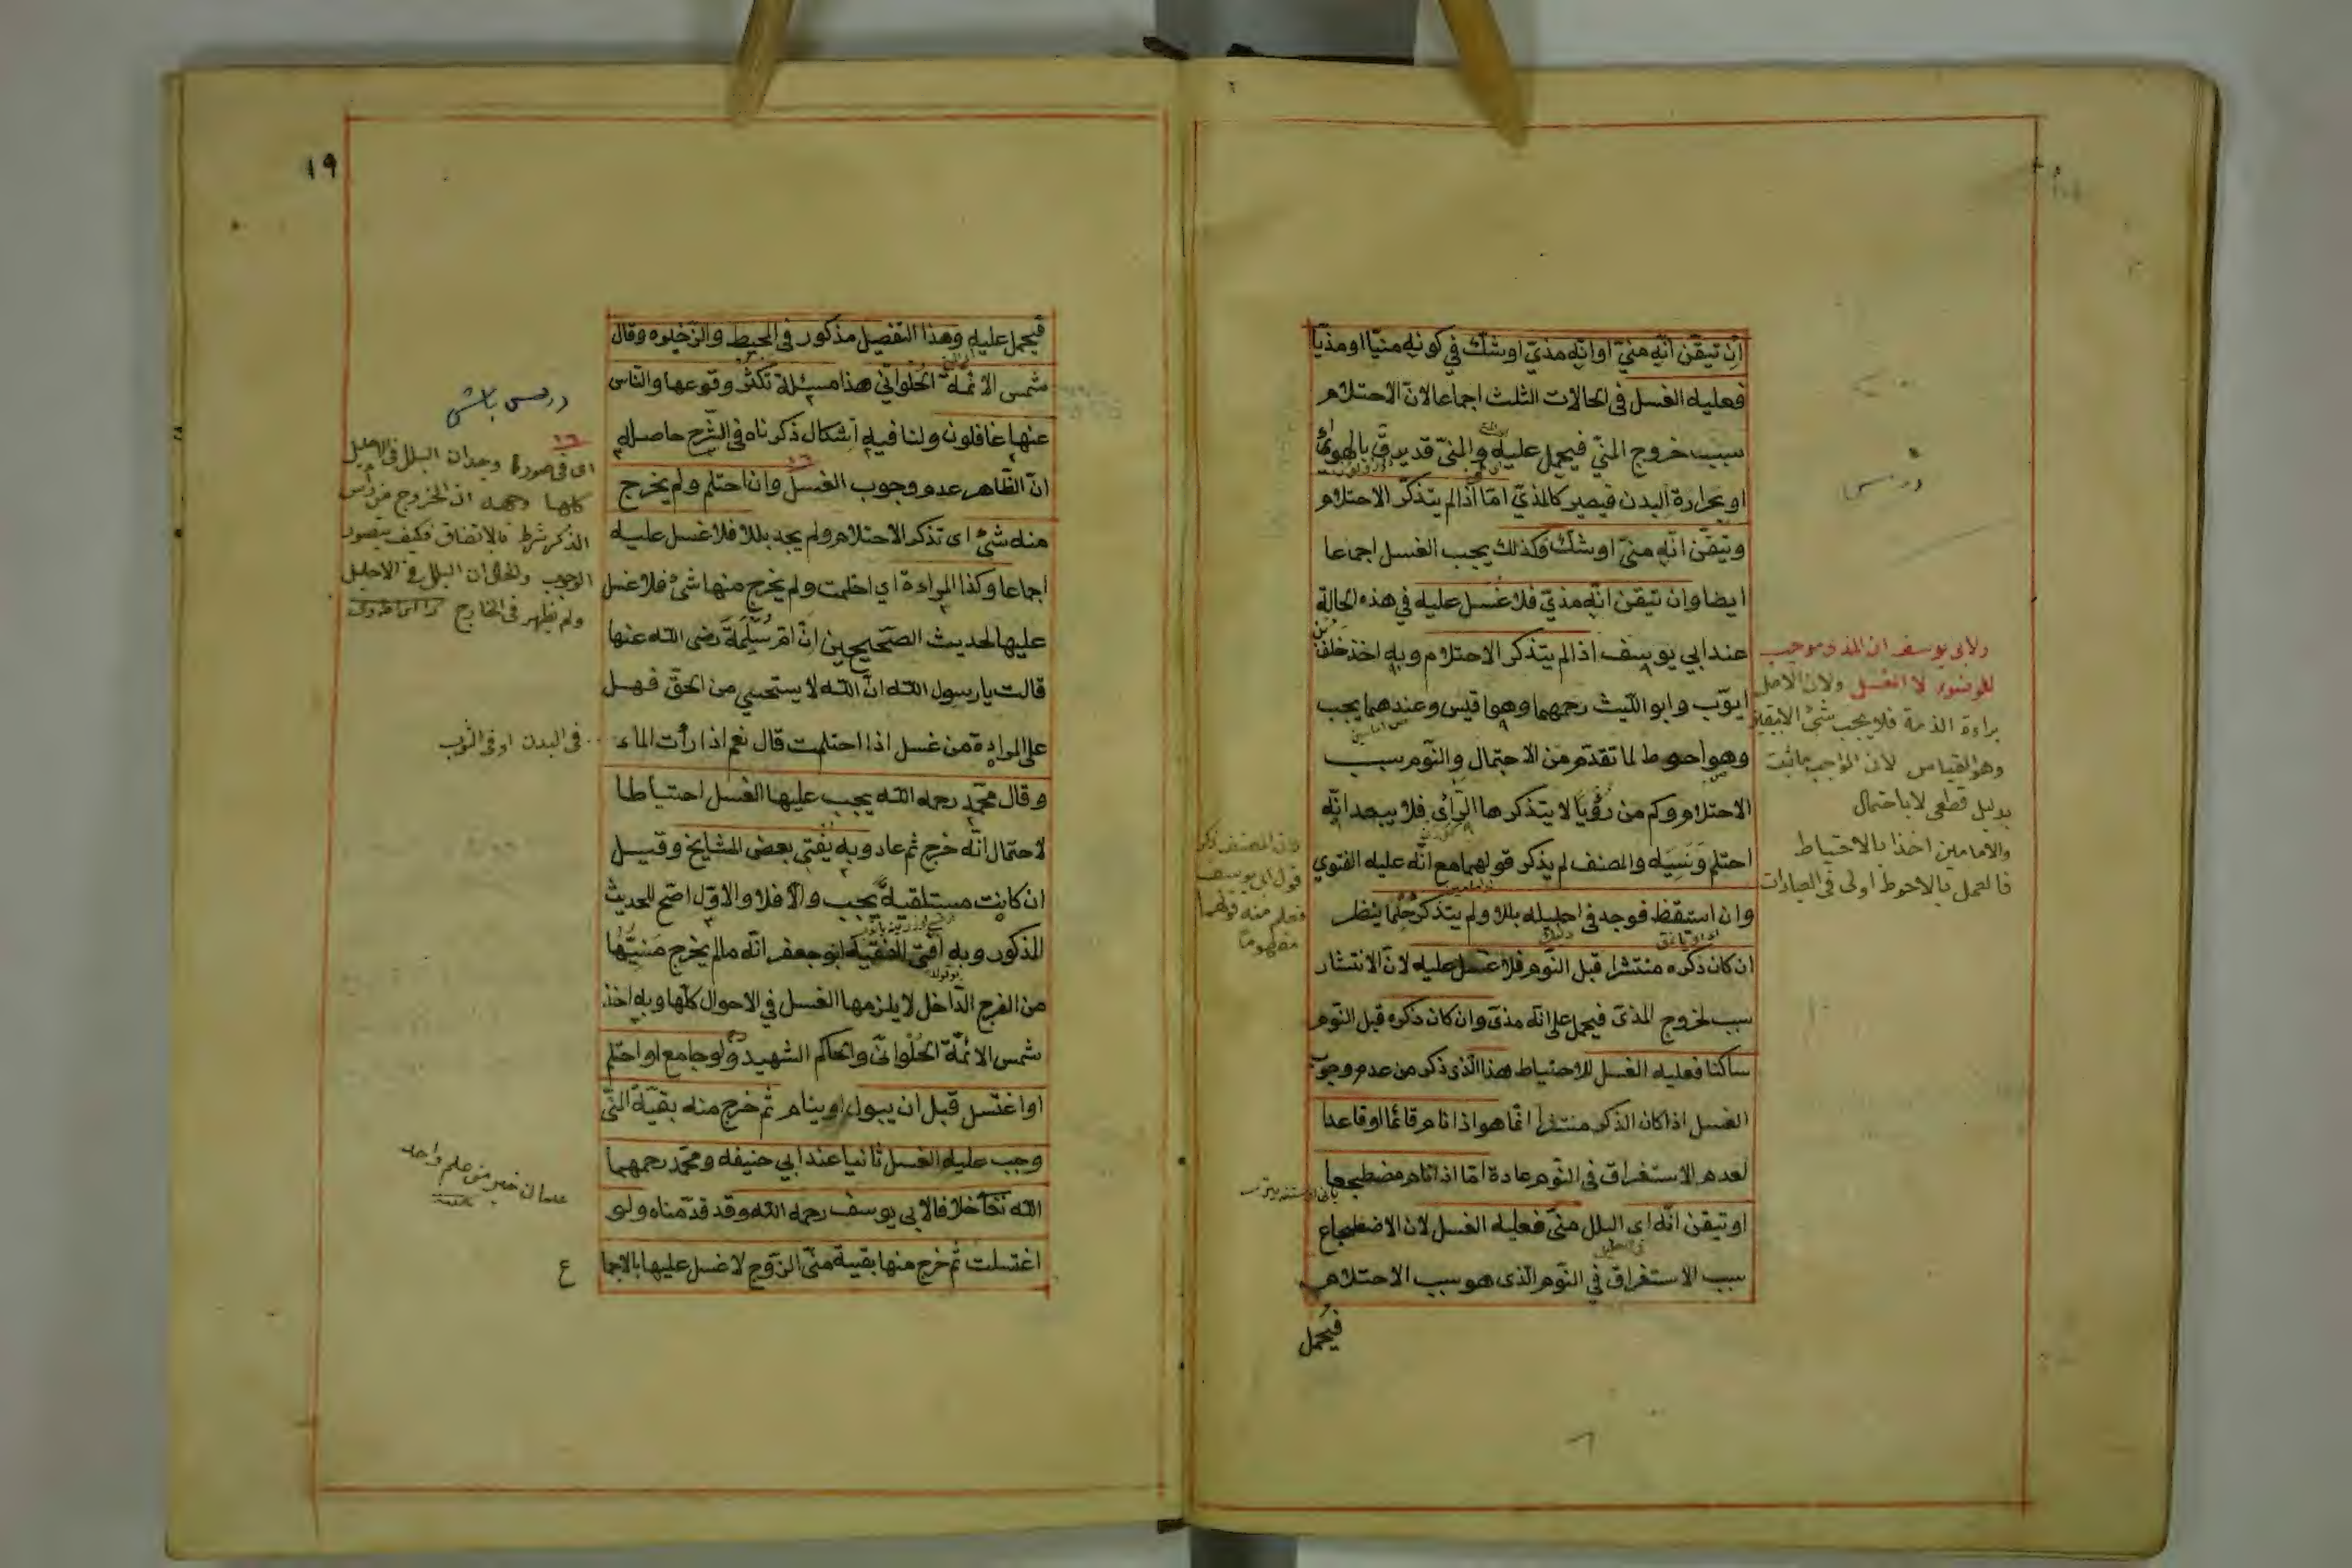 ان تيقن انه منيّ او انه مذيّ او شك في كونه منيا او مذيا
فعليه الغسل في الحالات الثلث اجماعا لان الاحتلام
سبب خروج المنيّ فيحمل عليه والمنيّ قد يرقّ بالهواء
او بحرارة البدن فيصير كالمذيّ امّا اذا لم يتذكّر الاحتلام
وتيقّن انّه منيّ او شك فكذلك يجب الغسل اجماعا
ايضا وان تيقن انّه مذيّ فلا غسل عليه في هذه الحالة
عند ابي يوسف اذا لم يتذكر الاحتلام وبه اخذ خلف بن
ايوّب وابو الليث رحمهما وهو اقيس وعندهما يجب
وهو احوط لما تقدّم من الاحتمال والنّوم سبب
الاحتلام وكم من رُؤيا لا يتذكرها الرّائى فلا يبعد انّه
احتلم وَنَسِيَه والمصنف لم يذكر قولهما مع انّه عليه الفتوي
وان استيقظ فوجد في احليله بللا ولم يتذكر حُلُما ينظر
ان كان ذكره منتشرا قبل النّوم فلا غسل عليه لانّ الانتشار
سبب لخروج المذى فيحمل على انّه مذى وان كان ذكره قبل النّوم
ساكنا فعليه الغسل للاحتياط هذا الّذى ذكر من عدم وجوب
الغسل اذا كان الذكر منتشرا انّما هو اذا نام قائما او قاعدا
لعدم الاستغراق في النّوم عادة امّا اذا نام مضطجعا
او تيقن انّه اى البلل منىّ فعليه الغسل لان الاضطجاع
سبب الاستغراق في النّوم الّذى هو سبب الاحتلام
فيُحمل
ولابى يوسف ان المذى موجب
للوضوء لا الغسل ولان الاصل
براءة الذمة فلا يجب شئ الا بيقين
وهو القياس لان الواجب ما ثبت
بدليل قطعى لا باحتمال
والامامين اخذا بالاحتياط
فالعمل بالاحوط اولى فى العبادات
المصنف ذكر
قول ابى يوسف
فعلم منه قولهما
مفهوما
١٩
فيُحمل عليه وهذا التّفصيل مذكور في المحيط والذّخيره وقال
شمس الائمة الحُلوانيّ هذا مسئلة تكثر وقوعها والنّاس
عنها غافلون ولنا فيه اشكال ذكرناه في الشّرح حاصله
انّ الظّاهر عدم وجوب الغسل وان احتلم ولم يخرج
منه شئ اى تذكر الاحتلام ولم يجد بللا فلا غسل عليه
اجماعا وكذا المراءة اي احتلمت ولم يخرج منها شئ فلا غسل
عليها لحديث الصّحيحين انّ امّ سُلَيمَة رضى الله عنها
قالت يا رسول الله انّ الله لا يستحيي من الحقّ فهل
على المراءة من غسل اذا احتلمت قال نعم اذا رأت الماء
وقال محمّد رحمه الله يجب عليها الغسل احتياطا
لاحتمال انّه خرج ثم عاد وبه يُفتي بعض المشايخ وقيل
ان كانت مستلقية يجب والّا فلا والاوّل اصّح للحديث
المذكور وبه افتى الفقيه ابو جعفر انّه ما لم يخرج مَنيّها
من الفرج الدّاخل لا يلزمها الغسل في الاحوال كلّها وبه اخذ
شمس الائمّة الحُلْوانىّ والحاكم الشهيد ولو جامع او احتلم
او اغتسل قبل ان يبول او ينام ثم خرج منه بقيّة المنّي
وجب عليه الغسل ثانيا عند ابي حنيفه ومحمّد رحمهما
الله تعا خلافا لابي يوسف رحمه الله وقد قدّمناه ولو
اغتسلت ثم خرج منها بقية منىّ الزّوج لا غسل عليها بالاجما
ع
درس باشى
١٦
اى فى صورة وجدان البلل فى الاحليل
كلها وجهه ان الخروج من رأس
الذكر شرط بالاتفاق فكيف يتصور
الوجوب والحال ان البلل فى الاحليل
ولم يظهر فى الخارج
فى البدن او فى الثوب
علمان خير من علم واحد